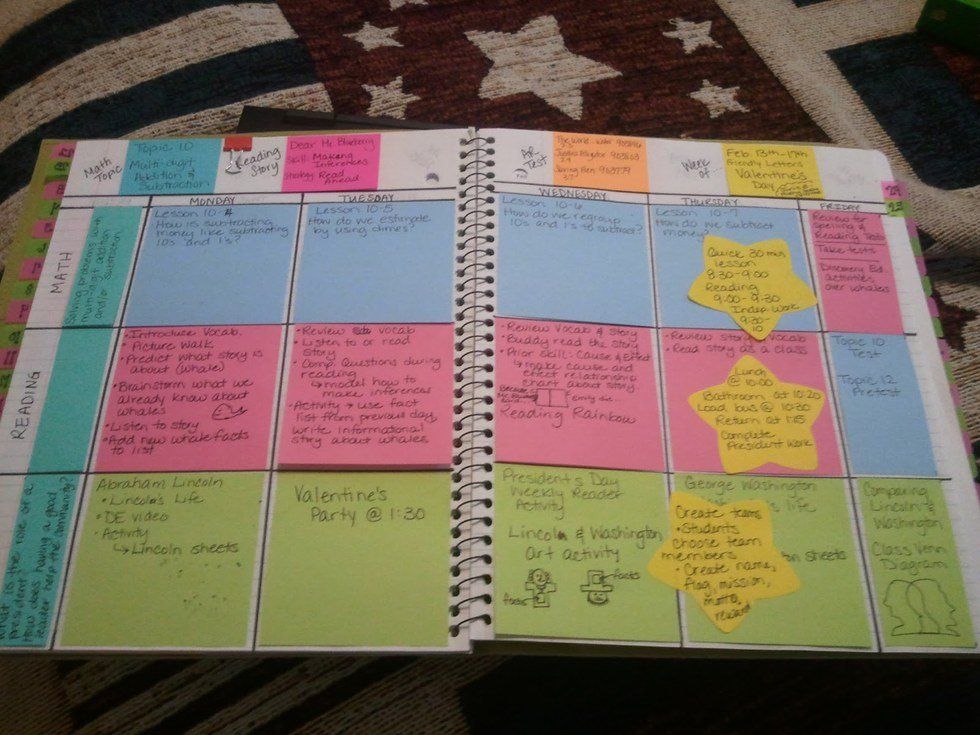 Math
Topic
Topic 10
Multi-digit
Addition &
Subtraction
Reading
Story
Dear Mr. Blueberry
Skill: Making
Inferences
Strategy: Read
Ahead
AR
Test
Week
of...
Feb. 13th-17th
Friendly Letters
Valentine's
Day
MONDAY
TUESDAY
WEDNESDAY
THURSDAY
FRIDAY
MATH
Solving problems with
multi-digit addition
and/or subtraction
Lesson 10-4
How is subtracting
money like subtracting
10s and 1's?
Lesson 10-5
How do we estimate
by using dimes?
Lesson 10-6
How do we regroup
10s and 1's to subtract?
Lesson 10-7
How do we subtract
money?
Quick 30 mins
lesson
8:30-9:00
Reading
9:00-9:30
Indep. Work
9:30-
10
Review for
Spelling &
Reading Tests
Take tests
Discovery Ed.
activities
over whales
READING
• Introduce Vocab.
• Picture Walk
• Predict what story is
about (Whale)
• Brainstorm what we
already know about
whales
• Listen to story
• Add new whale facts
to list
• Review vocab
• Listen to or read
story
• Comp. Questions during
reading
↳ model how to
make inferences
• Activity → use fact
list from previous day,
write informational
story about whales
• Review Vocab & story
• Buddy read the story
• Prior skill: Cause & Effect
↳ make cause and
effect relationship
chart about story
Because
Emily died...
Reading Rainbow
• Review story & vocab
• Read story as a class
Lunch
@ 10:00
Bathroom at 10:20
Load bus @ 10:30
Return at 1:15
Complete
President Work
Topic 10
Test
Topic 12
Pretest
What is the role of a
president?
How does having a good
leader help the community?
Abraham Lincoln
• Lincoln's Life
• DE video
• Activity
↳ Lincoln sheets
Valentine's
Party @ 1:30
President's Day
Weekly Reader
Activity
Lincoln & Washington
Art activity
facts
facts
George Washington
's life
on sheets
Create teams
• Students
choose team
members
• Create name,
flag, mission,
motto,
reward
Comparing
Lincoln &
Washington
Class Venn
Diagram